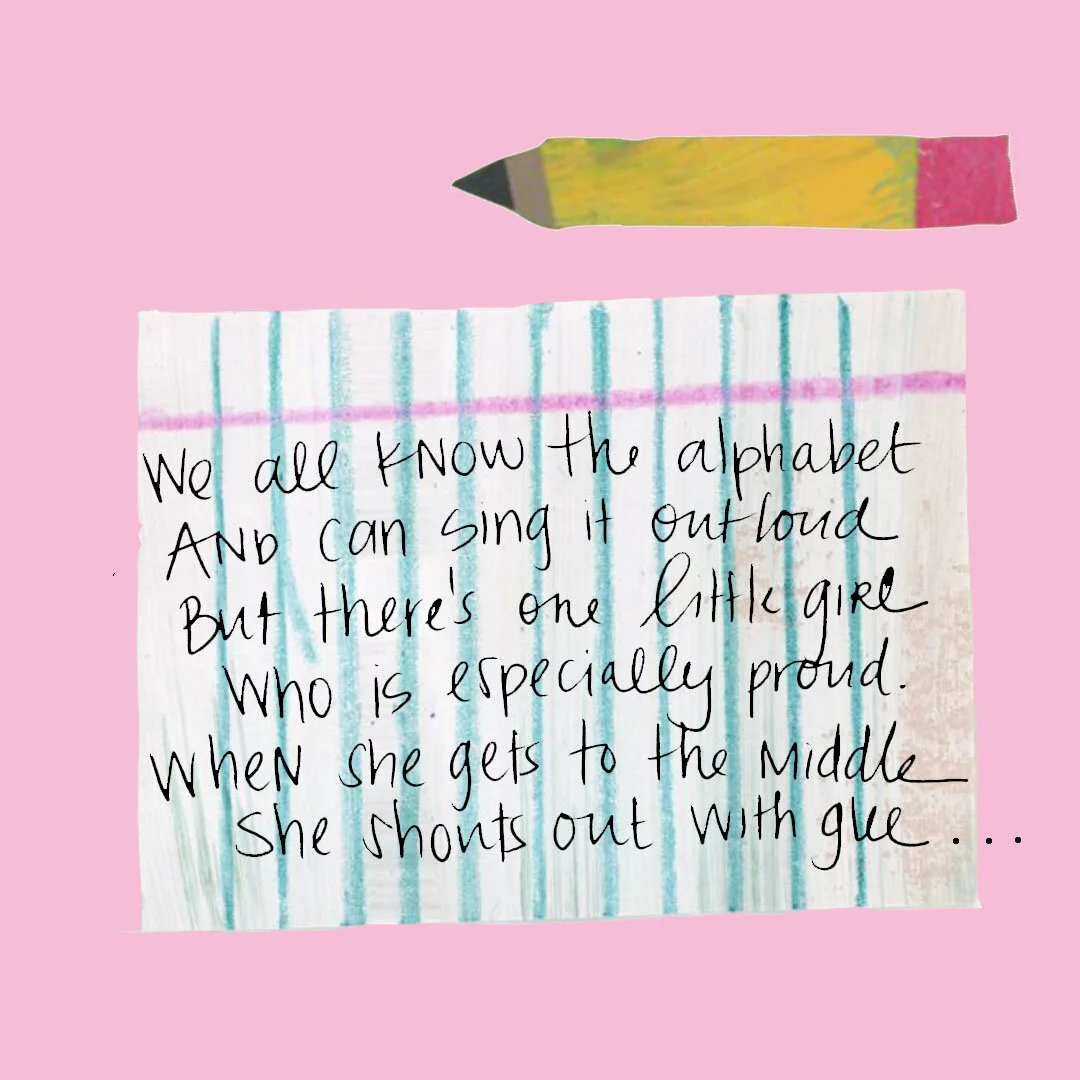 We all KNOW the alphabet
AND can sing it outloud
But there's one little girl
Who is especially proud.
WheN she gets to the Middle
She shouts out with glee...